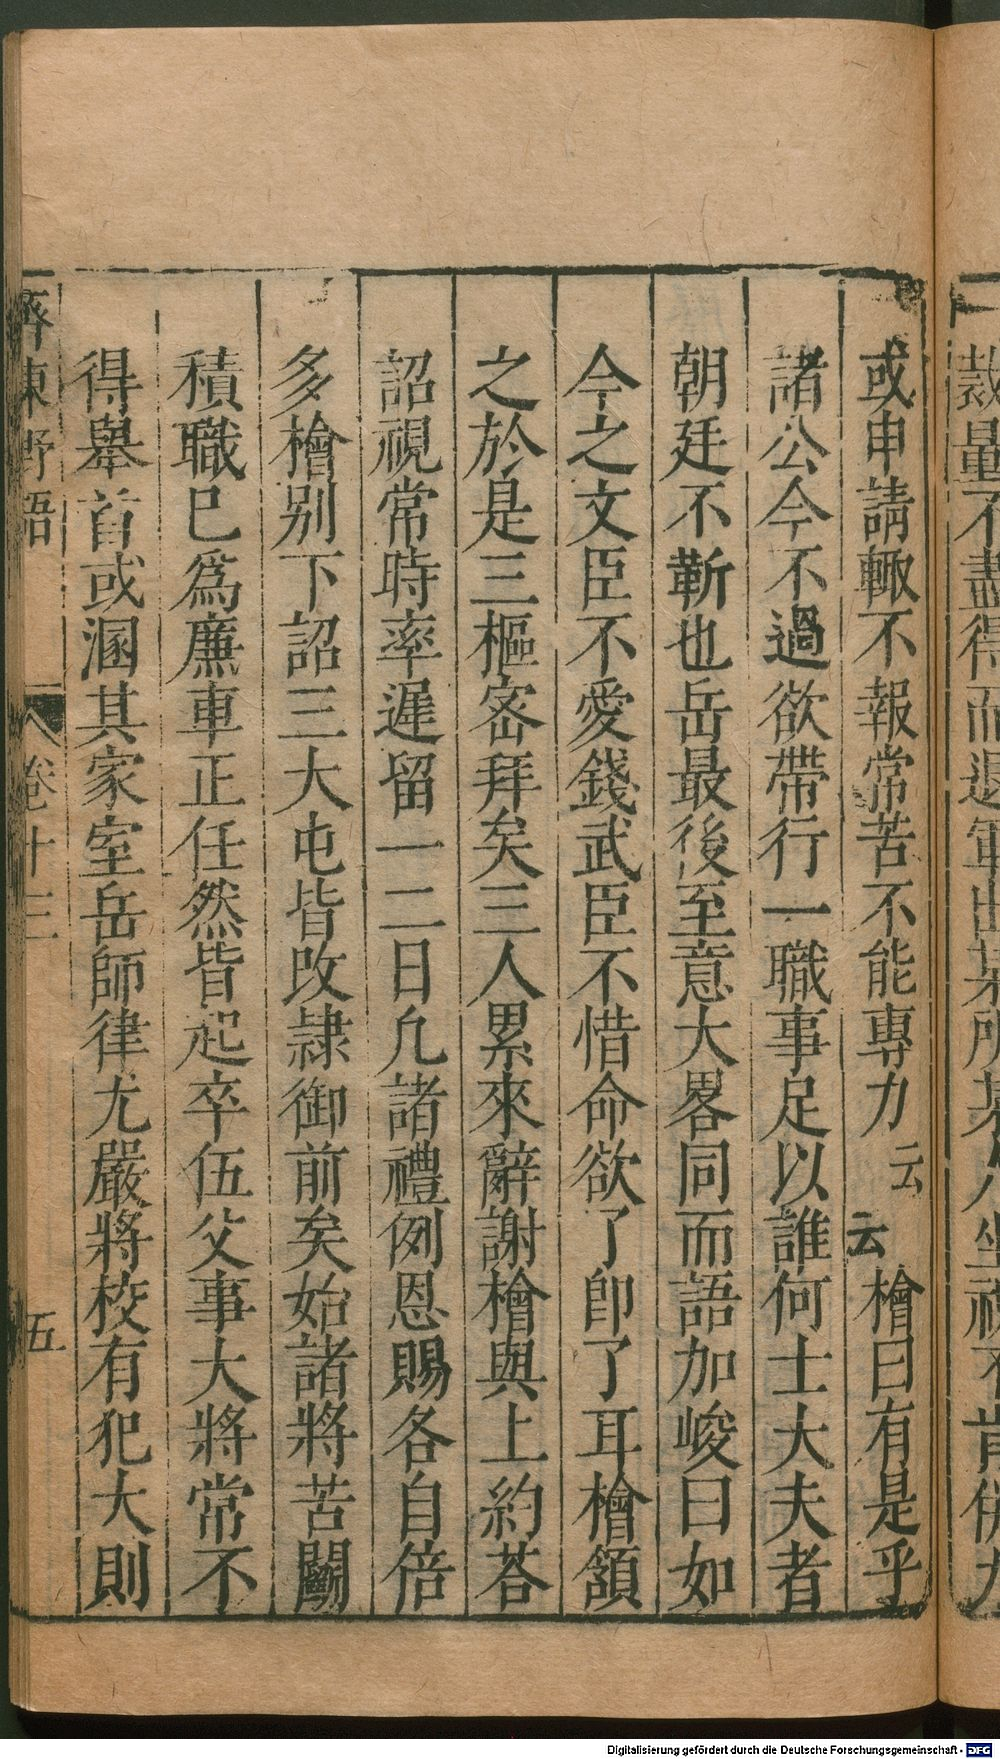 或申請輙不報常苦不能專力云云檜曰有是乎
諸公今不過欲帶行一職事足以誰何士大夫者
朝廷不靳也岳最後至意大畧同而語加峻曰如
今之文臣不愛錢武臣不惜命欲了卽了耳檜頷
之於是三樞密拜矣三人累來辭謝檜與上約荅
詔視常時率遲留一二日凢諸禮例恩賜各自倍
多檜别下詔三大屯皆改隷御前矣始諸將苦鬭
積職巳爲廉車正任然皆起卒伍父事大將常不
得舉首或溷其家室岳師律尤嚴將校有犯大則
齊東野語 卷十三 五
裁量不盡得而退軍出某所某
Digitalisierung gefördert durch die Deutsche Forschungsgemeinschaft - DFG